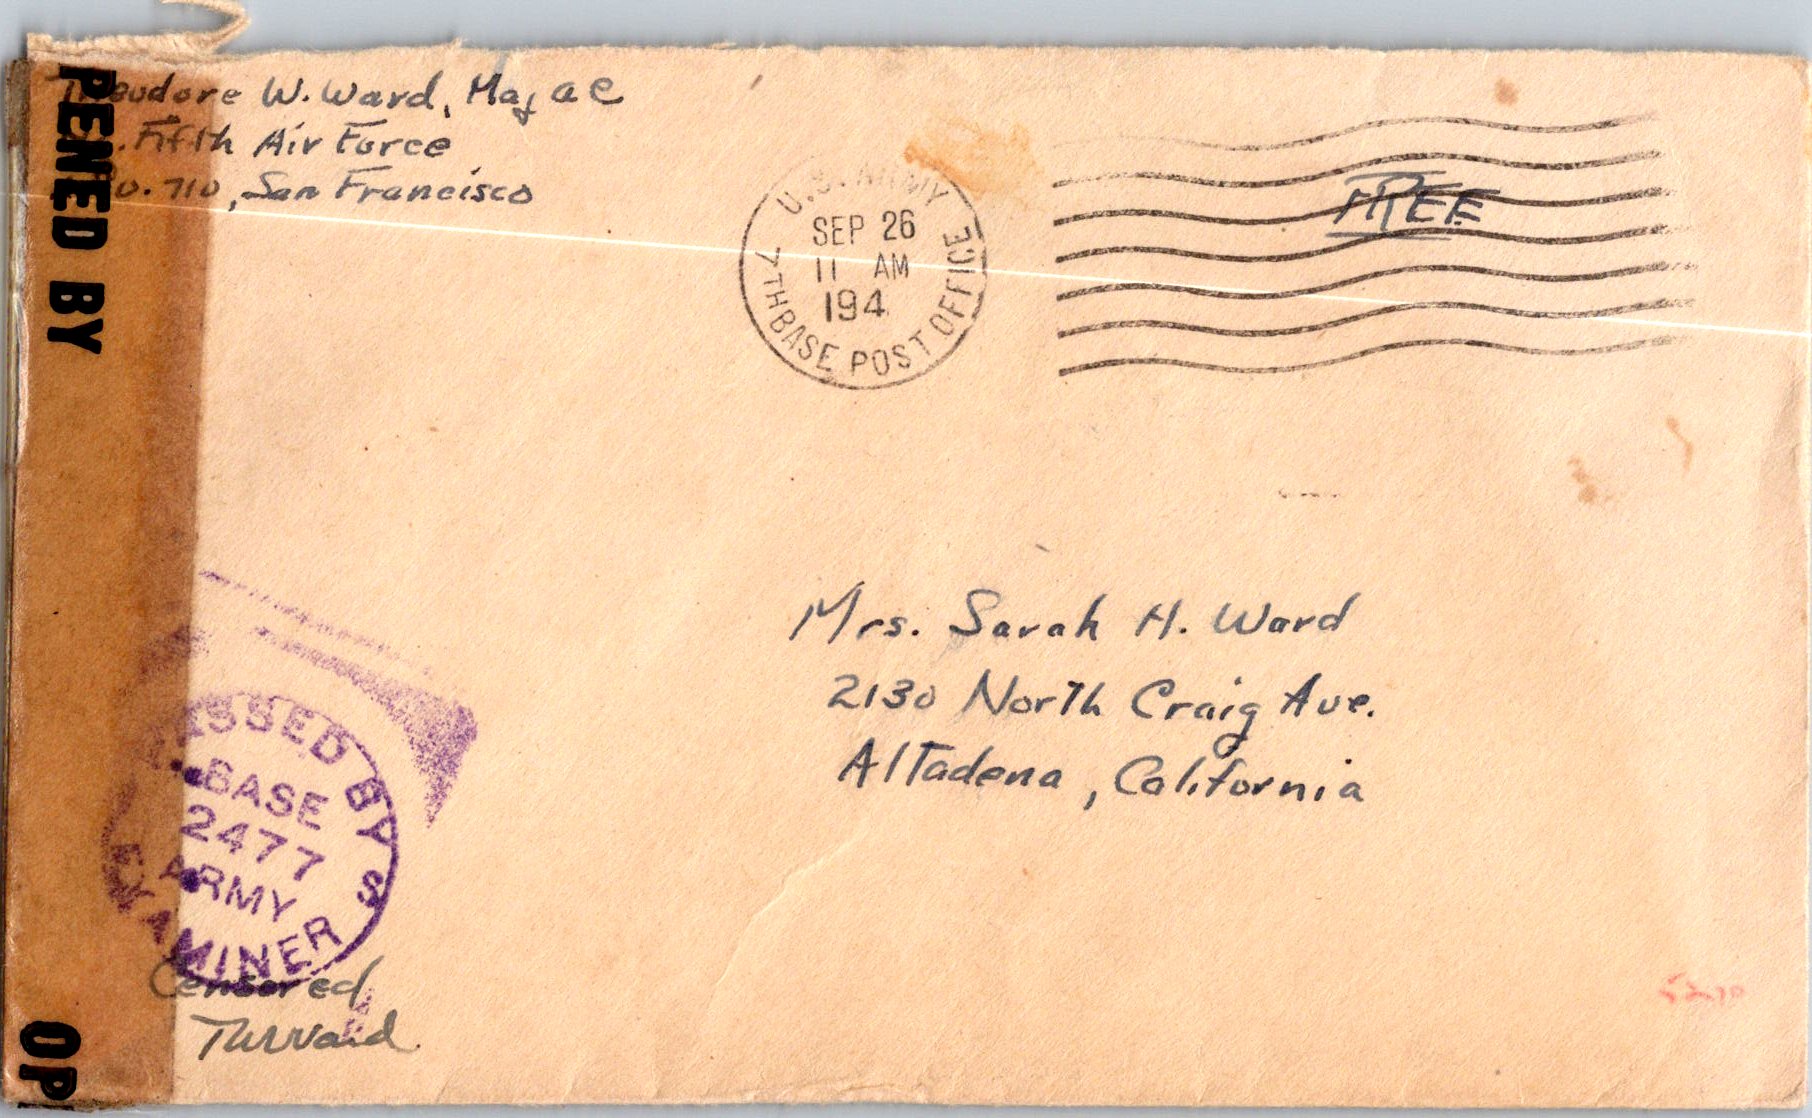 Theodore W. Ward, Maj AC
Fifth Air Force
710, San Francisco
U.S. ARMY
SEP 26
11 AM
194
7TH BASE POST OFFICE
FREE
Mrs. Sarah H. Ward
2130 North Craig Ave.
Altadena, California
PENED BY
OP
ASSED BY
BASE
2477
ARMY
EXAMINER
S
Censored
TWWard